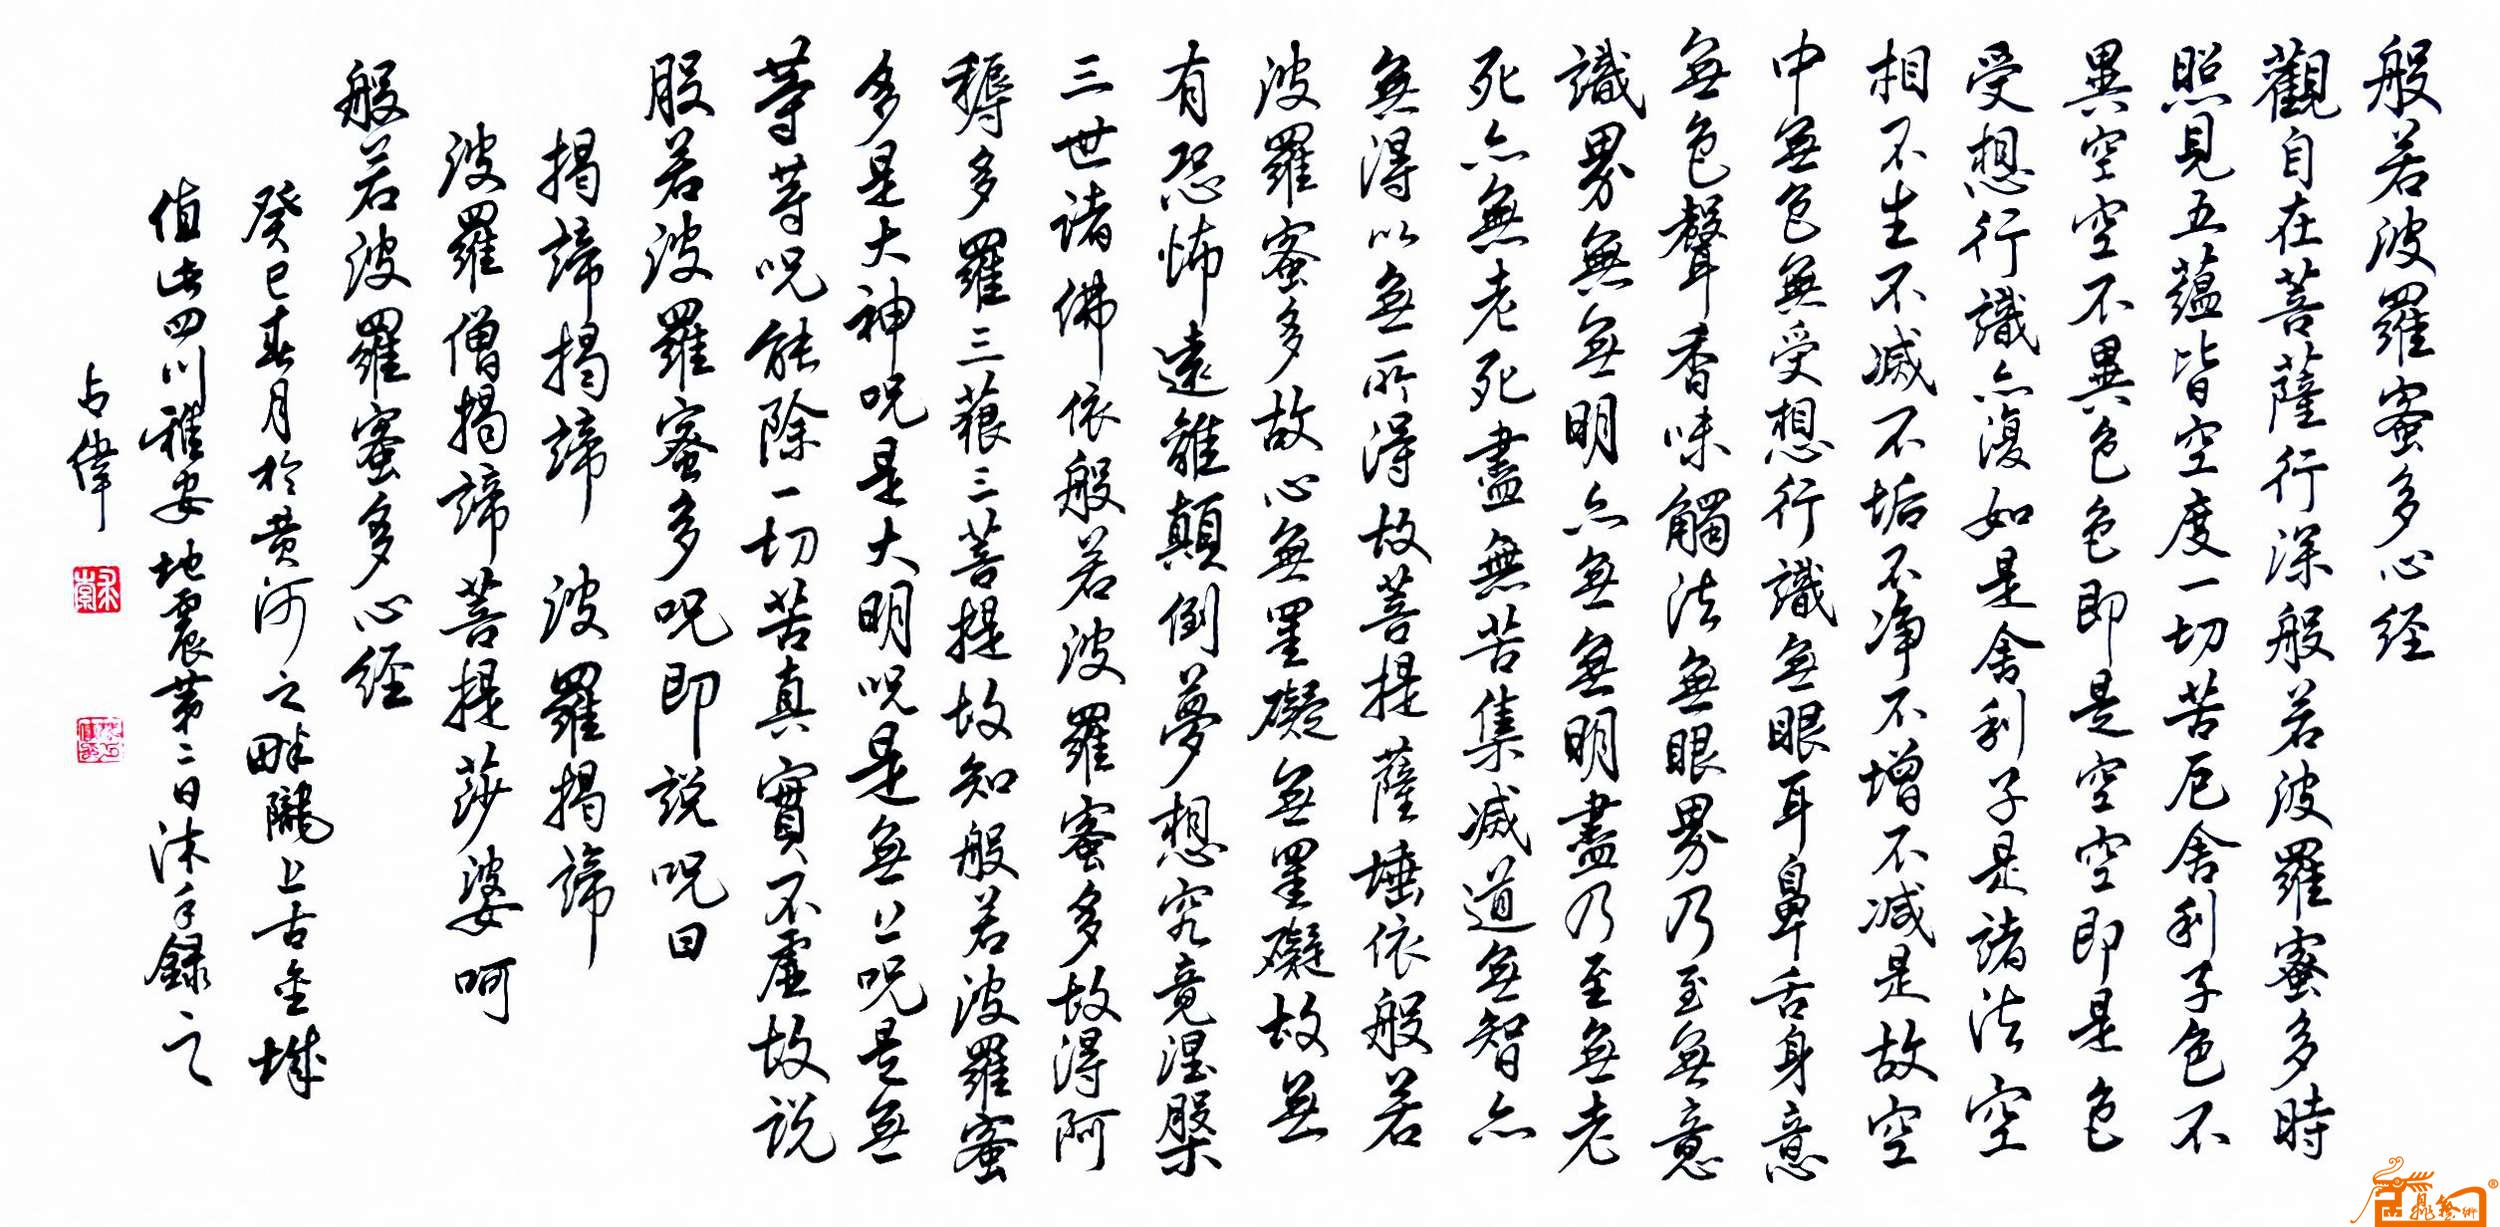 般若波羅蜜多心经
觀自在菩薩行深般若波羅蜜多時
照見五蘊皆空度一切苦厄舍利子色不
異空空不異色色即是空空即是色
受想行識亦復如是舍利子是諸法空
相不生不滅不垢不净不增不减是故空
中無色無受想行識無眼耳鼻舌身意
無色聲香味觸法無眼界乃至無意
識界無無明亦無無明盡乃至無老
死亦無老死盡無苦集滅道無智亦
無得以無所得故菩提薩埵依般若
波羅蜜多故心無罣礙無罣礙故無
有恐怖遠離顛倒夢想究竟涅槃
三世諸佛依般若波羅蜜多故得阿
耨多羅三藐三菩提故知般若波羅蜜
多是大神呪是大明呪是無上呪是無
等等呪能除一切苦真實不虛故説
般若波羅蜜多呪即説呪曰
揭諦揭諦 波羅揭諦
波羅僧揭諦菩提莎婆呵
般若波羅蜜多心经
癸巳春月於黄河之畔隴上古金城
值此四川雅安地震第二日沐手録之
占偉